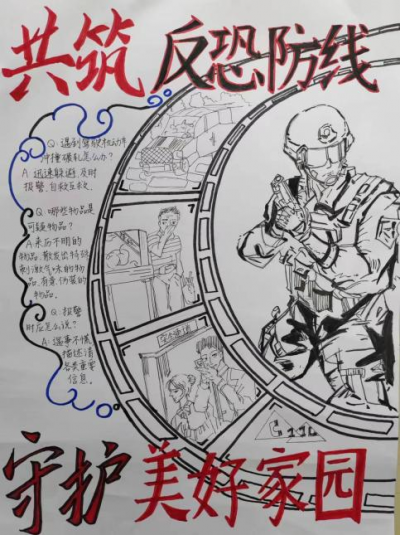 共筑 反恐防线
Q: 遇到驾驶机动车
冲撞碾轧怎么办?
A 迅速躲避,及时
报警、自救互救。
Q: 哪些物品是
可疑物品?
A:来历不明的
物品,散发出特殊
刺激气味的物
品,有意伪装的
物品。
Q: 报警
时应怎么说?
A: 遇事不慌,
描述清
各类重要
信息。
守护 美好家园